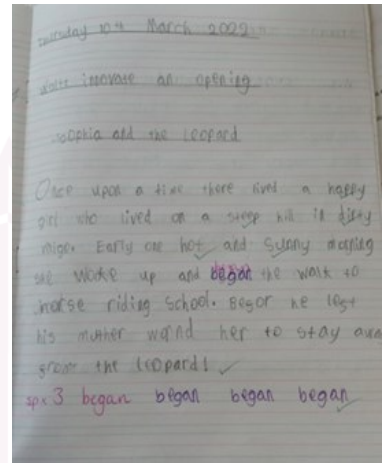 Thursday 10th March 2022
WALT: innovate an opening
sophia and the Leopard
Once upon a time there lived a happy
girl who lived on a steep hill in disty
niger. Early one hot and sunny morning
she woke up and began the walk to
horse riding school. Befor he left
his mother wornd her to stay awa
from the Leopard!
spx3 began began began began